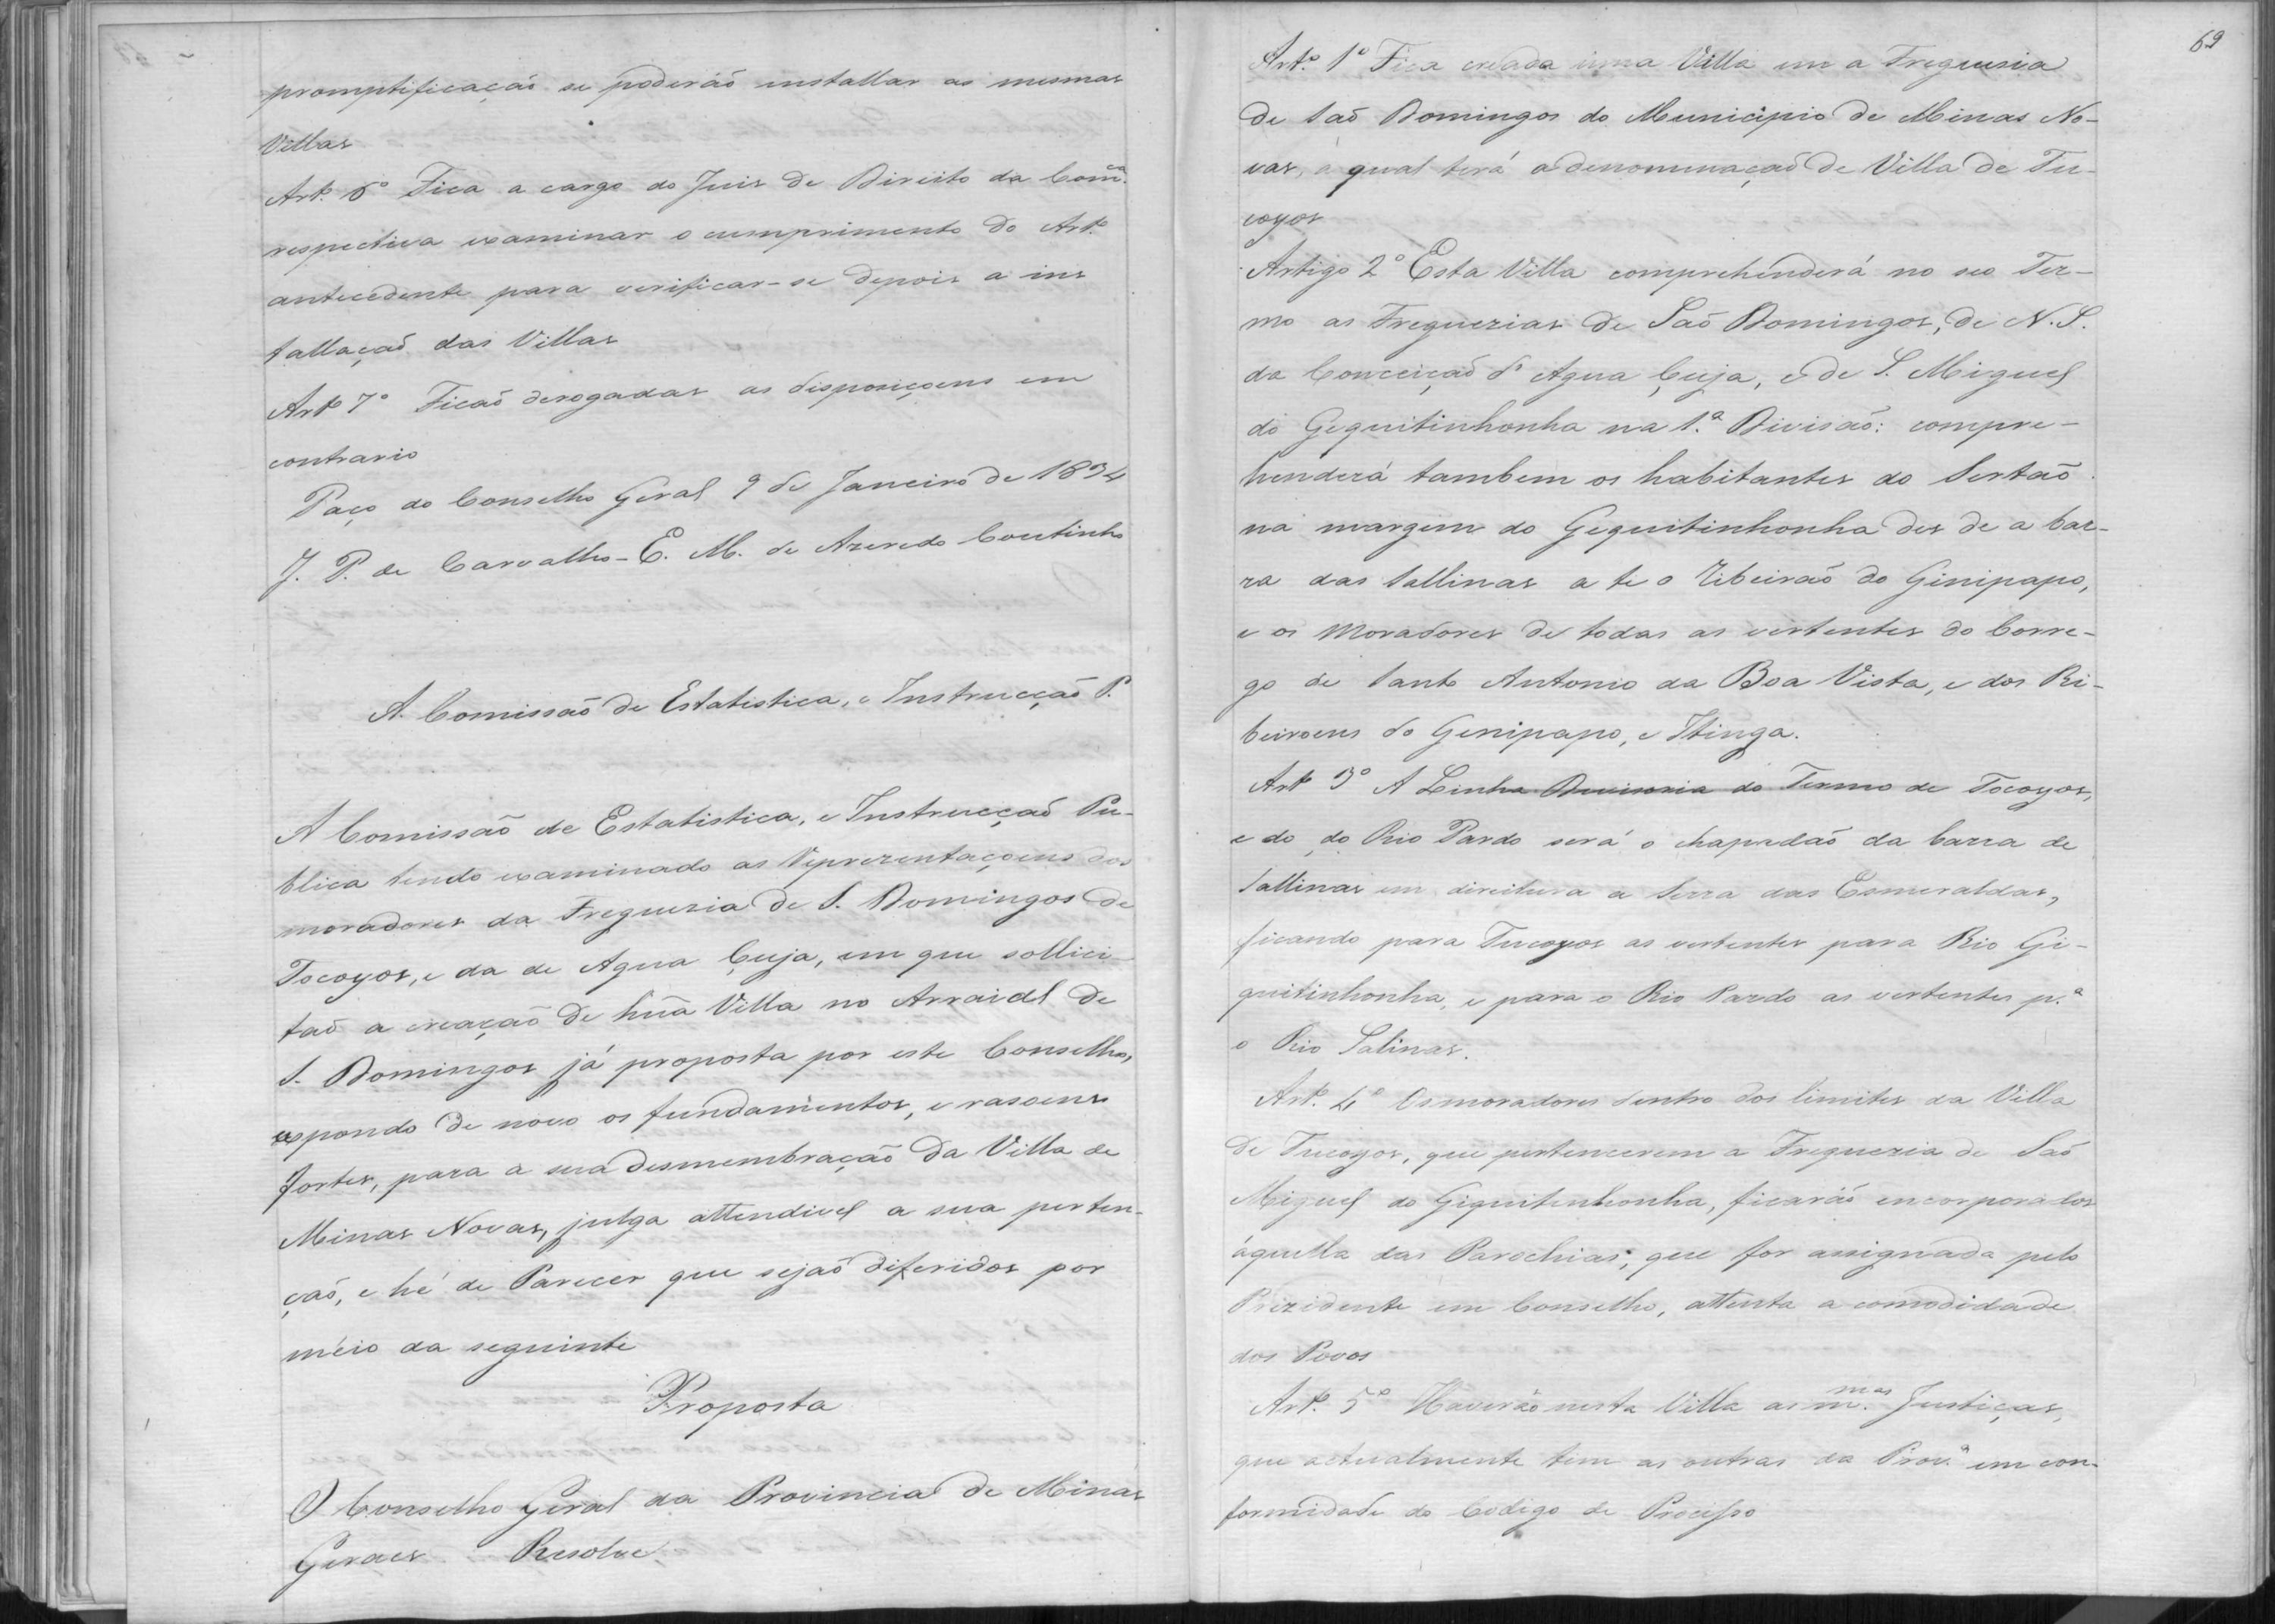 promptificação se poderáõ installar as mesmas
Villas
Artº 6º Fica a cargo do Juis de Direito da Comca
respectiva examinar o cumprimento do Artº
antecedente para verificar-se depois a ins
tallaçaõ das Villas
Artº 7º Ficaõ derogadas as disposiçoens em
contrario
Paço do Conselho Geral 9 de Janeiro de 1834
J. P. de Carvalho - E. M. de Azeredo Coutinho
A Comissaõ de Estatistica, e Instrucçaõ P.
A Comissaõ de Estatistica, e Instrucçaõ Pu-
blica tendo examinado as Reprezentaçoens dos
moradores da Freguesia de S. Domingos de
Tocoyos, e da de Agua Çuja, em que sollici-
taõ a creaçaõ de hũa Villa no Arraial de
S. Domingos já proposta por este Conselho,
expondo de novo os fundamentos, e rasoens
fortes, para a sua desmembraçaõ da Villa de
Minas Novas, julga attendivel a sua perten-
çaõ, e hé de Parecer que sejaõ diferidos por
méio da seguinte
Proposta
O Conselho Geral da Provincia de Minas
Geraes Resolve
69
Artº 1º Fica creada uma Villa em a Freguesia
de Saõ Domingos do Municipio de Minas No-
vas, a qual terá a denominaçaõ de Villa de Tu-
coyos
Artigo 2º Esta Villa comprehenderá no seo Ter-
mo as Freguezias de Saõ Domingos, de N. S.
da Conceiçaõ d' Agua Çuja, e de S. Miguel
do Gequitinhonha na 1.ª Divisaõ: compre-
henderá tambem os habitantes do Sertaõ
na margem do Gequitinhonha des de a bar-
ra das Sallinas a te o Ribeiraõ do Ginipapo,
e os Moradores de todas as vertentes do Corre-
go de Santo Antonio da Boa Vista, e dos Ri-
beiroens do Genipapo, e Itinga.
Artº 3º A Linha Divisoria do Termo de Tocoyos,
e do do Rio Pardo será o chapadaõ da barra de
Sallinas em direitura a Serra das Esmeraldas,
ficando para Tucoyos as vertentes para Rio Gi-
quitinhonha, e para o Rio Pardo as vertentes p.ª
o Rio Salinas.
Artº. 4º Os moradores dentro dos limites da Villa
de Tucoyos, que pertencerem a Freguezia de Saõ
Miguel do Giquitenhonha, ficaráõ encorporados
áquella das Parochias, que for assignada pelo
Prezidente em Conselho, attenta a comodidade
dos Povos
Artº. 5º Haveráõ nesta Villa as m.mas Justiças,
que actualmente tem as outras da Prov.ª em con-
formidade do Codigo de Processo